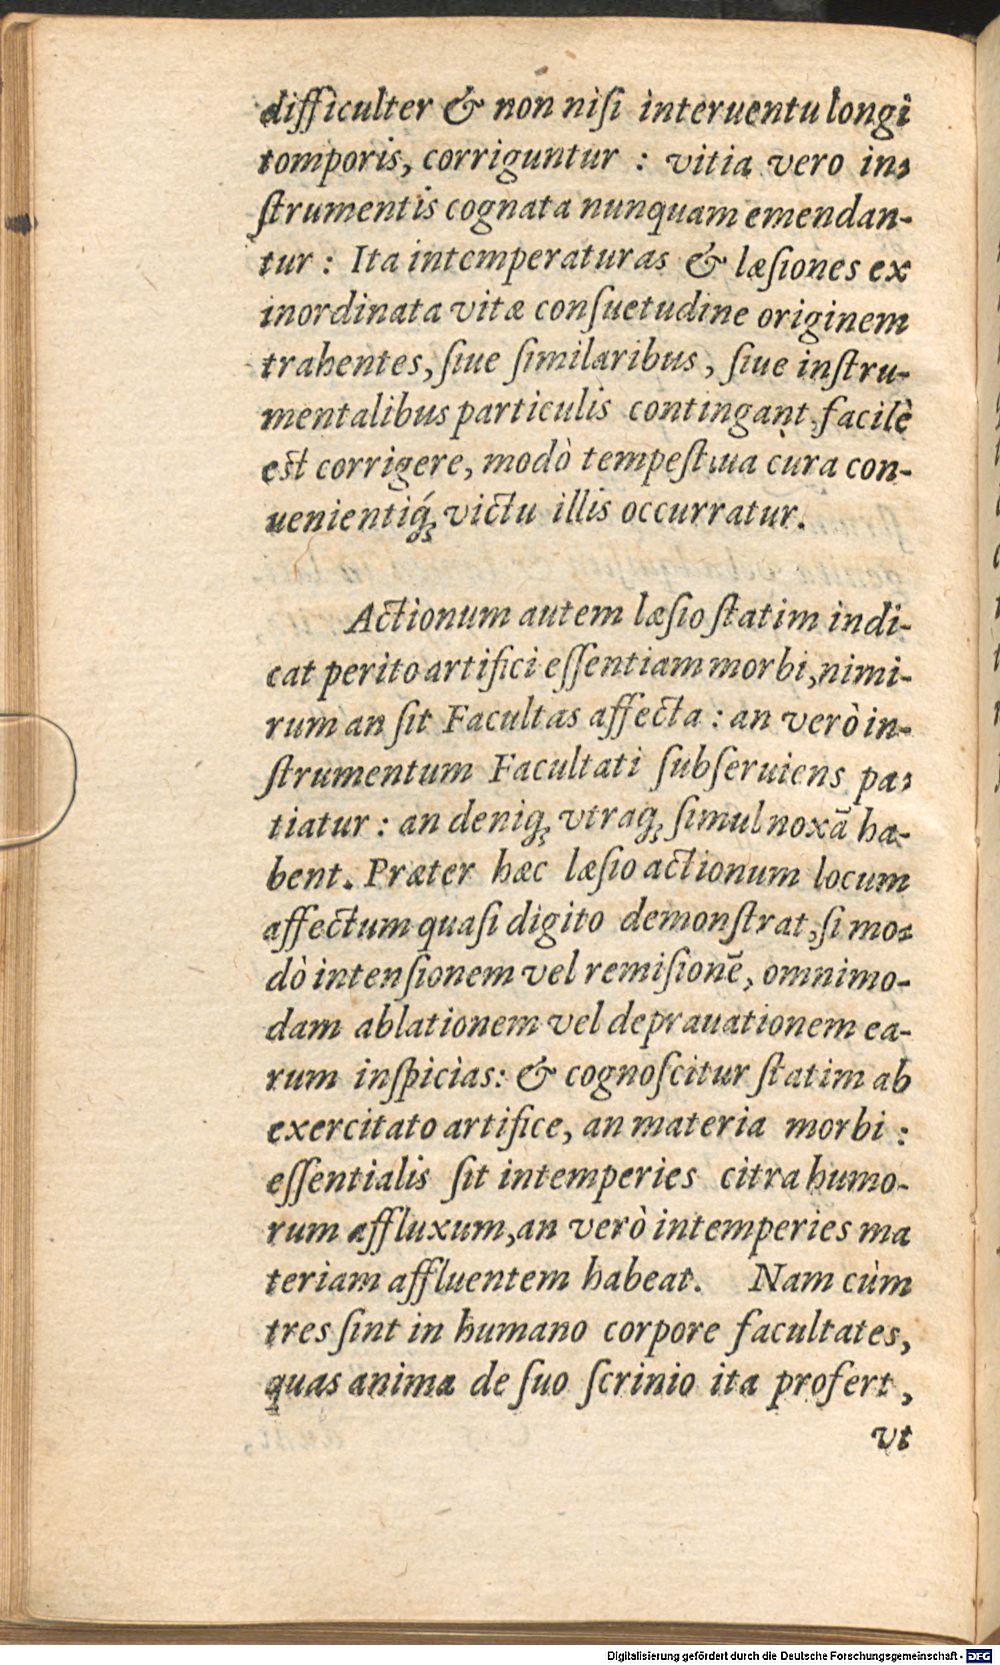 difficulter & non niſi interuentu longi
tomporis, corriguntur : vitia vero in-
ſtrumentis cognata nunquam emendan-
tur : Ita intemperaturas & læſiones ex
inordinata vitæ conſuetudine originem
trahentes, ſiue ſimilaribus, ſiue inſtru-
mentalibus particulis contingant, facilè
eſt corrigere, modò tempeſtiua cura con-
uenientiq́; victu illis occurratur.
Actionum autem læſio ſtatim indi-
cat perito artifici eſſentiam morbi, nimi-
rum an ſit Facultas affecta : an verò in-
ſtrumentum Facultati ſubſeruiens pa-
tiatur : an deniq; vtraq; ſimul noxā ha-
bent. Præter hæc læſio actionum locum
affectum quaſi digito demonſtrat, ſi mo-
dò intenſionem vel remiſionē, omnimo-
dam ablationem vel deprauationem ea-
rum inſpicias: & cognoſcitur ſtatim ab
exercitato artifice, an materia morbi :
eſſentialis ſit intemperies citra humo-
rum affluxum, an verò intemperies ma
teriam affluentem habeat. Nam cùm
tres ſint in humano corpore facultates,
quas anima de ſuo ſcrinio ita profert,
vt
Digitalisierung gefördert durch die Deutsche Forschungsgemeinschaft - DFG